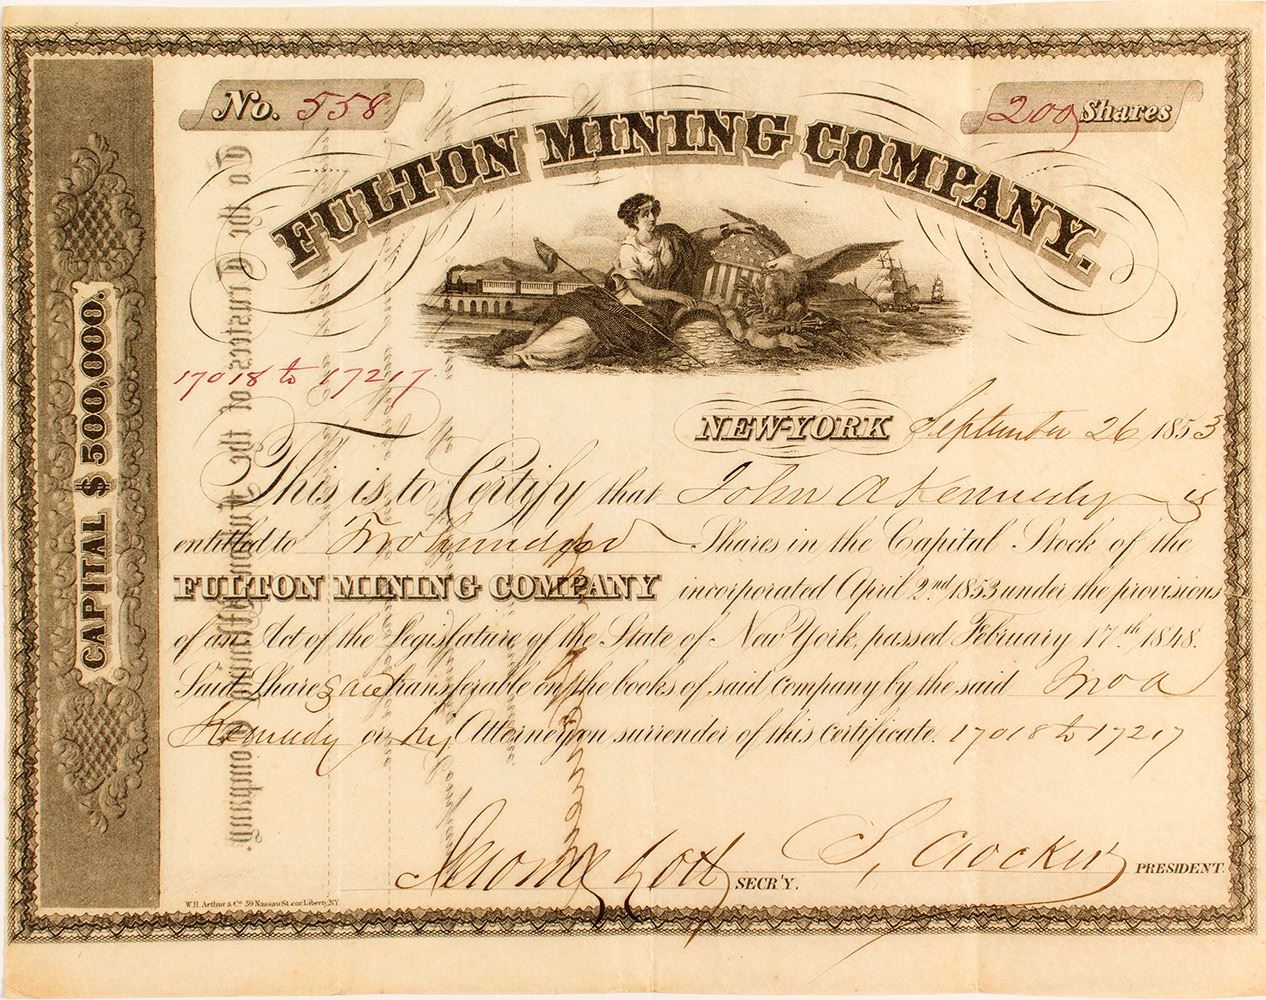 No. 558
200 Shares
FULTON MINING COMPANY.
17018 to 17217
NEW-YORK September 26 1853
This is to Certify that John A Kennedy is
entitled to Two hundred Shares in the Capital Stock of the
FULTON MINING COMPANY incorporated April 2nd 1853 under the provisions
of an Act of the Legislature of the State of New York, passed February 17th 1848.
Said Shares are transferable on the books of said Company by the said Jno A
Kennedy or his Attorney on surrender of this Certificate. 17018 to 17217
SECR'Y.
PRESIDENT
W.H. Arthur & Co 39 Nassau St. cor Liberty, NY.
CAPITAL $500,000.
To the Trustees of the Fulton Mining Company.